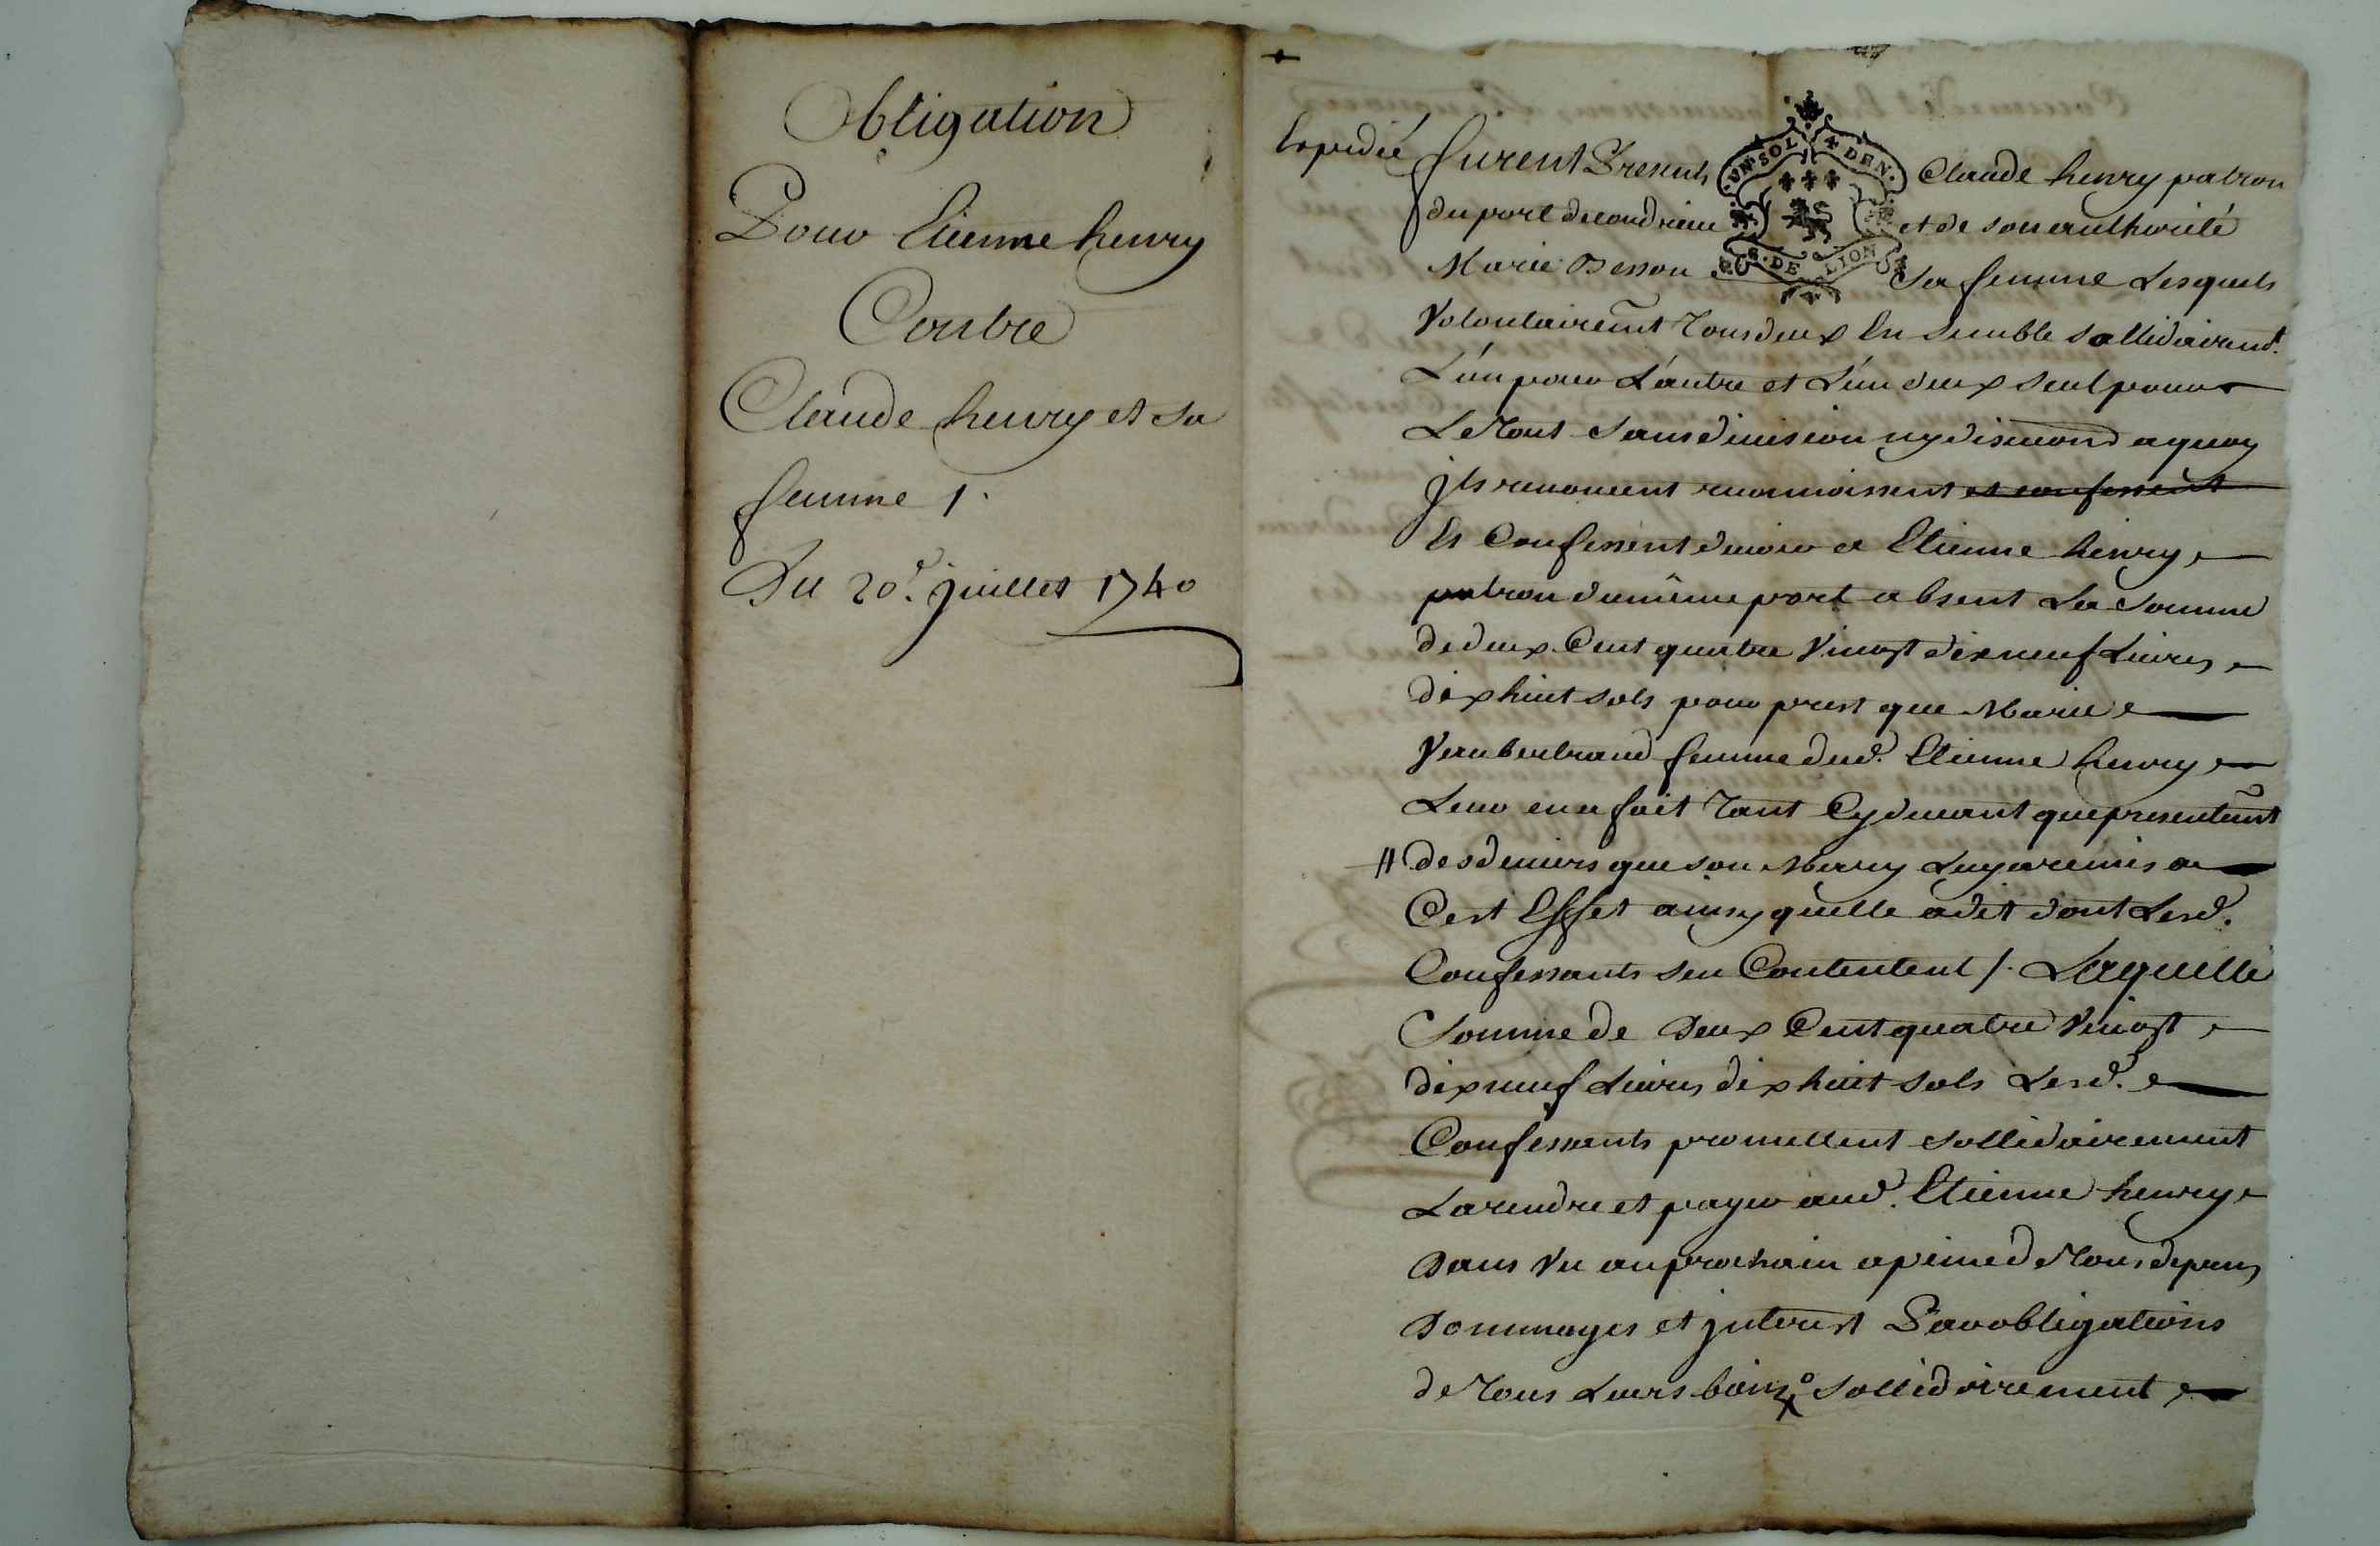 Obligation
Pour Etienne henry
Contre
Claude henry et sa
femme /.
Du 20e. juillet 1740
Expedié
furent Presents Claude henry patron
du port de condrieu et de son authorité
Marie Besson sa femme Lesquels
Volontairemt Tous deux En semble sollidairemt.
L'un pour L'autre et L'un deux seul pour
Le Tout sans division ny discution a quoy
jls renoncent reconnoissent et confessent
Et Confessent devoir a Etienne henry
patron du même port absent La somme
de deux Cent quatre Vingt dix neuf Livres
dix huit sols pour prest que Marie
Vaubertrand femme dud. Etienne henry
Leur en a fait Tant Cy devant que presentemt
# des deniers que son Marry Luy a remis a
Cest Effet ainsy quelle a dit dont Lesd.
Confessants sen Contentent /. Laquelle
Somme de Deux Cent quatre Vingt
dix neuf Livres dix huit sols Lesd.
Confessants promettent sollidairement
La rendre et payer aud. Etienne henry
Dans Un an prochain a peine de Tous depens
Dommages et jnterest Par obligations
de Tous Leurs biens sollidairement
UN·SOL 4 DEN·
G·DE LION